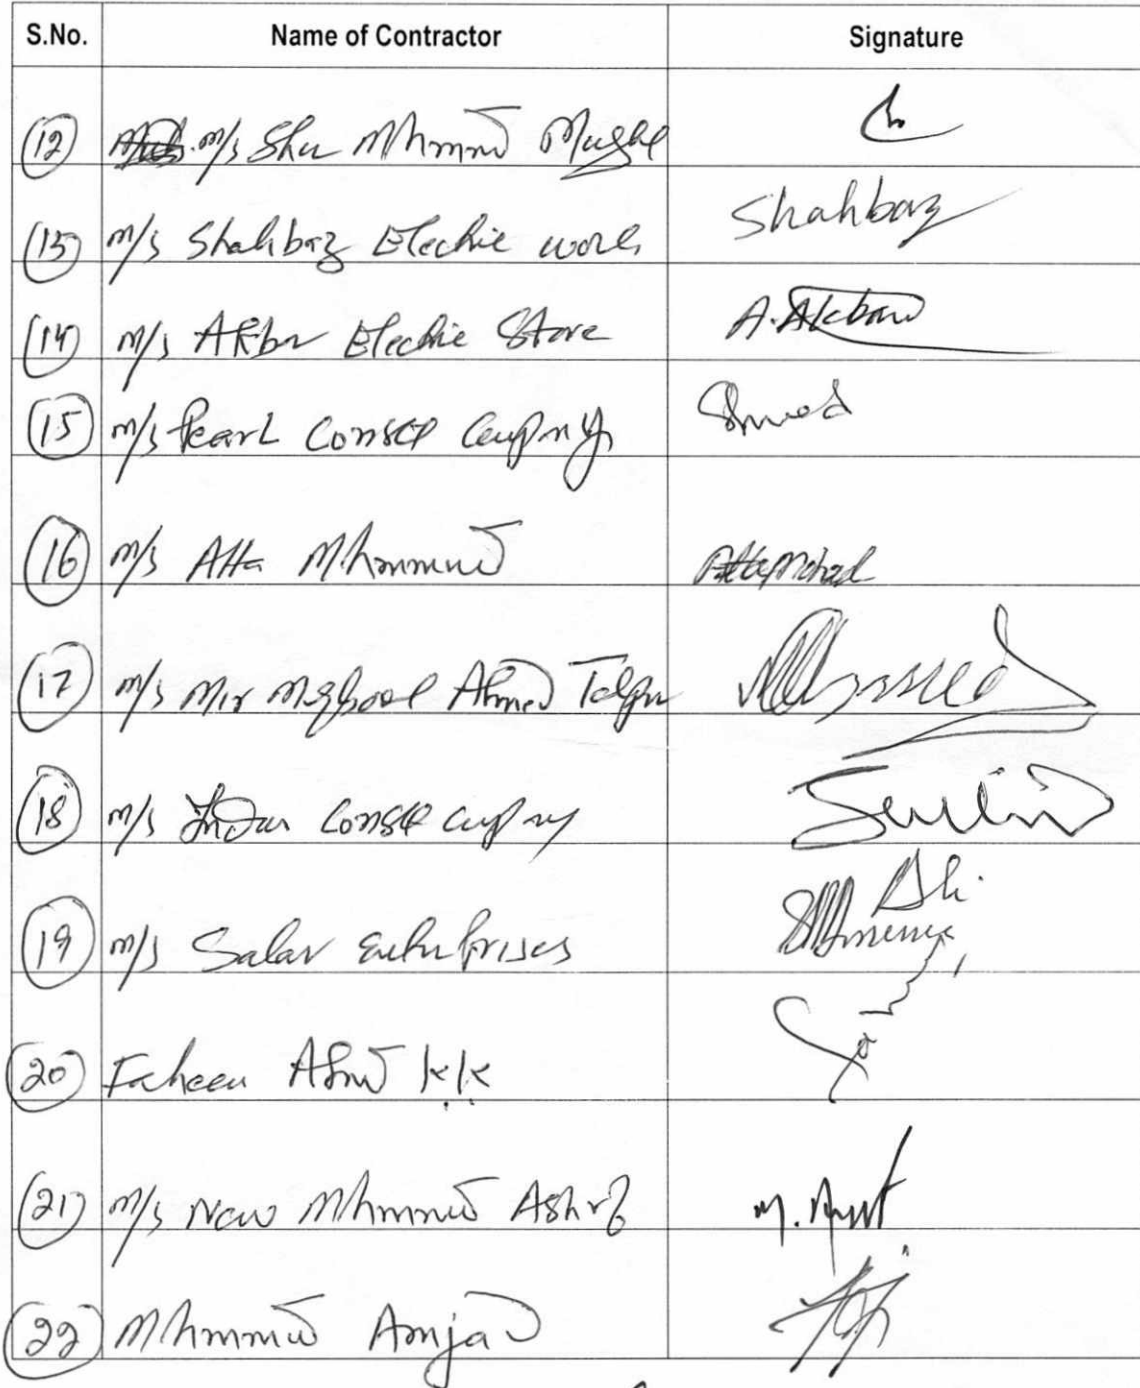 S.No. Name of Contractor Signature
12 m/s Sher Mhmmd Mughl
13 m/s Shahbaz Electric works Shahbaz
14 m/s Akbr Electric Store A. Akbar
15 m/s Pearl Const Company
16 m/s Atta Mhmmd Atta Mohad
17 m/s Mir Mqbool Ahmed Talpur
18 m/s Const Company
19 m/s Salar Enterprises Ali
20 Faheem Ahmd K.K.
21 m/s New Mhmmd Ashrf
22 Mhmmd Amjad